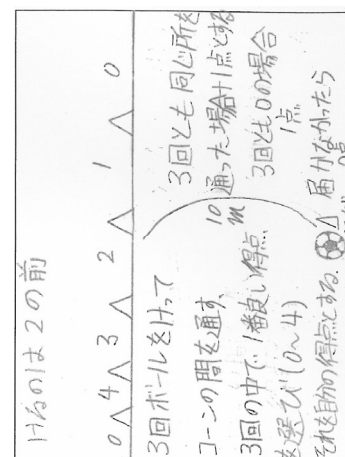 けるのは2の前
0 4 3 2 1 0
3回ボールをけって
コーンの間を通す
3回の中で1番良い得点
を選び(0~4)
それを自分の得点とする。
10m
3回とも同じ所を
通った場合+1点とする
3回とも0の場合
1点
届かなかったら